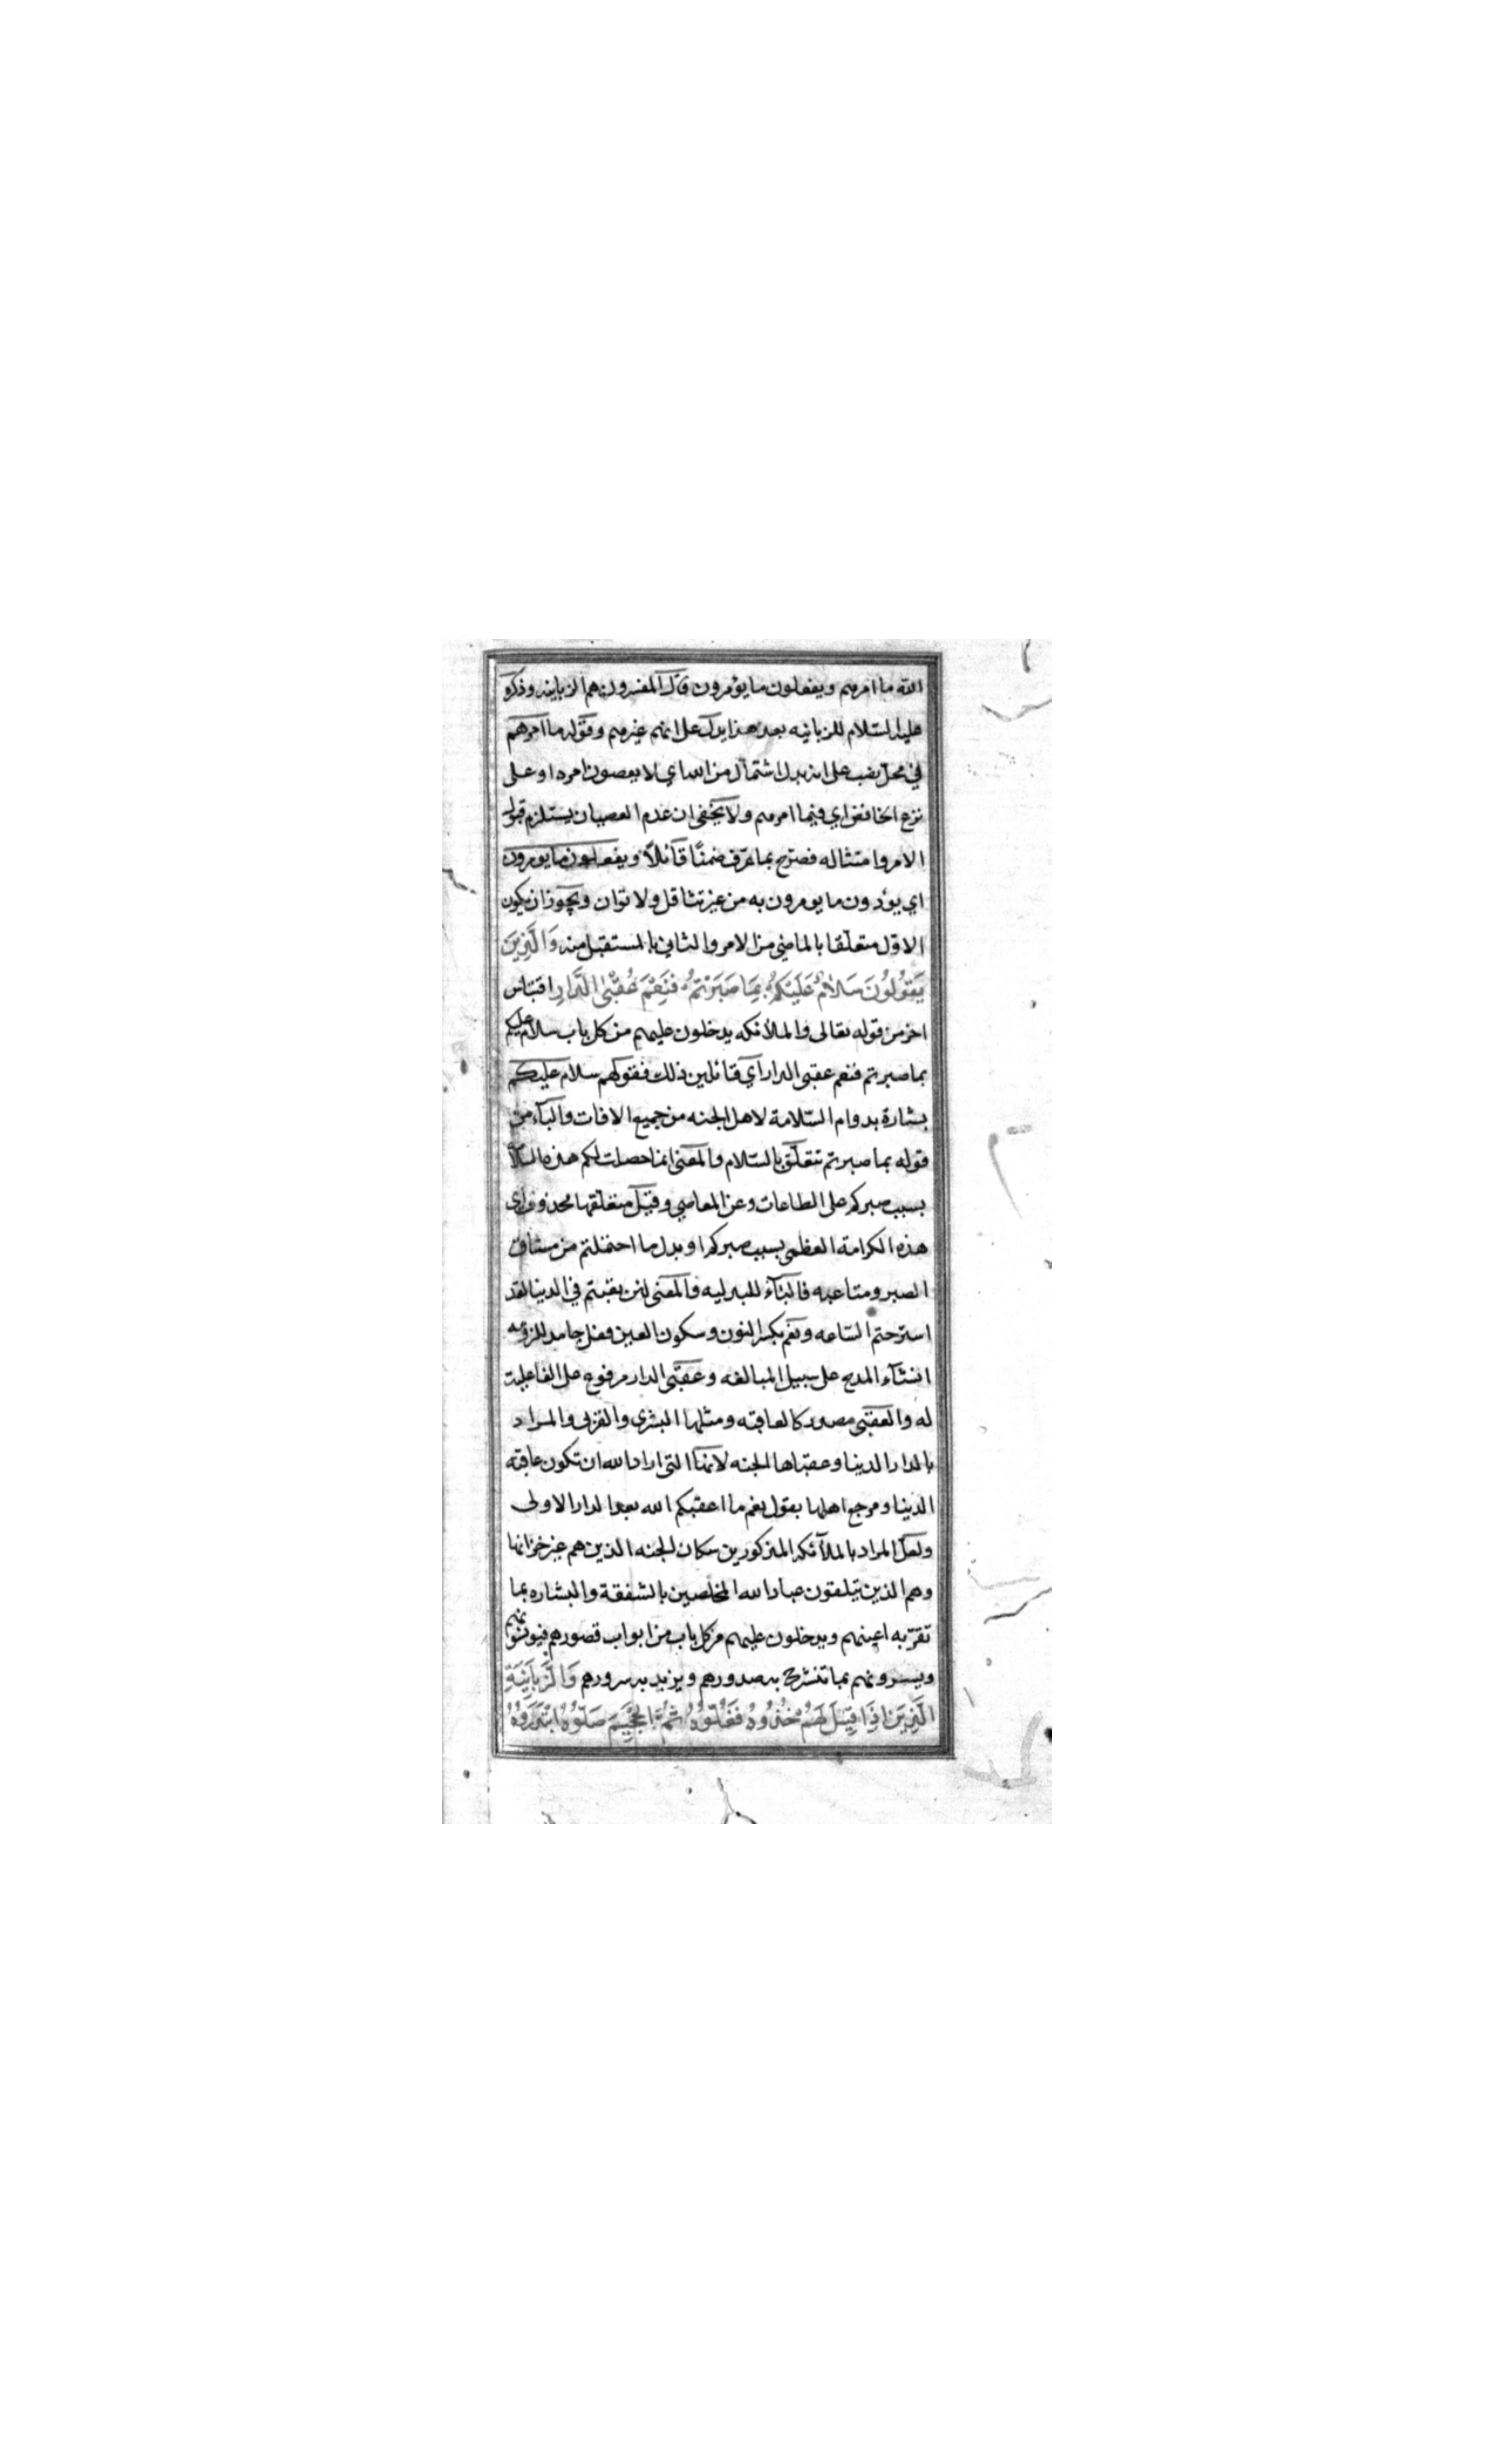 الله ما امرهم ويفعلون ما يؤمرون قال المفسرون هم الزبانيه وذكره
عليه السلام للزبانيه بعد هذا يدل على انهم غيرهم وقوله ما امرهم
في محل نصب على انه بدل اشتمال من الله اي لا يعصون امره او على
نزع الخافض اي فيما امرهم ولا يخفى ان عدم العصيان يستلزم قبول
الامر وامتثاله فصرح بما عرف ضمنًا قائلًا ويفعلون ما يومرون
اي يؤدون ما يومرون به من غير تثاقل ولا توان ويجوز ان يكون
الاول متعلقا بالماضي من الامر والثاني بالمستقبل منه وَالَّذِينَ
يَقُولُونَ سَلَامٌ عَلَيْكُمْ بِمَا صَبَرْتُمْ فَنِعْمَ عُقْبَى الدَّارِ اقتباس
اخر من قوله تعالى والملائكه يدخلون عليهم من كل باب سلام عليكم
بما صبرتم فنعم عقبى الدار اي قائلين ذلك فقولهم سلام عليكم
بشارة بدوام السلامة لاهل الجنه من جميع الافات والبآء من
قوله بما صبرتم تتعلق بالسلام والمعنى انما حصلت لكم هذه السلامة
بسبب صبركم على الطاعات وعن المعاصي وقيل متعلقها محذوف اي
هذه الكرامة العظمى بسبب صبركم او بدل ما احتملتم من مشاق
الصبر ومتاعبه فالبآء للبدليه والمعنى لئن تعبتم في الدنيا لقد
استرحتم الساعه ونعم بكسر النون وسكون العين فعل جامد للزومه
انشآء المدح على سبيل المبالغه وعقبى الدار مرفوع على الفاعليه
له والعقبى مصدر كالعاقبه ومثلها البشرى والقربى والمراد
بالدار الدنيا وعقباها الجنه لانها التي اراد الله ان تكون عاقبه
الدنيا ومرجع اهلها بقول نعم ما اعقبكم الله بعد الدار الاولى
ولعل المراد بالملآئكه المذكورين سكان الجنه الذين هم غير خزانها
وهم الذين يتلقون عباد الله المخلصين بالشفقة والبشاره بما
تقر به اعينهم ويدخلون عليهم من كل باب من ابواب قصورهم فيونسونهم
ويسرونهم بما تنشرح به صدورهم ويزيد به سرورهم وَالزَّبَانِيَةِ
الَّذِينَ اِذَا قِيلَ لَهُمْ خُذُوهُ فَغُلُّوهُ ثُمَّ الْجَحِيمَ صَلُّوهُ ابْتَدَرُوهُ